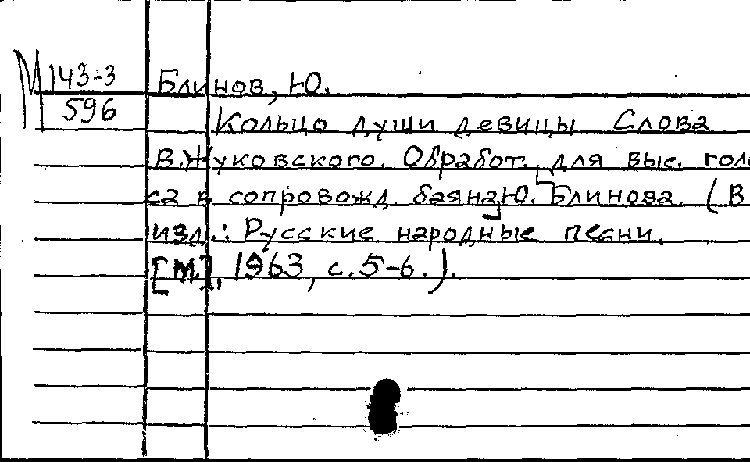 М 143-3
596
Блинов, Ю.
Кольцо души девицы Слова
В.Жуковского. Обработ. для выс. голо
са в сопровожд. баяна Ю. Блинова. (В
изд.: Русские народные песни.
[М], 1963, с. 5-6.).